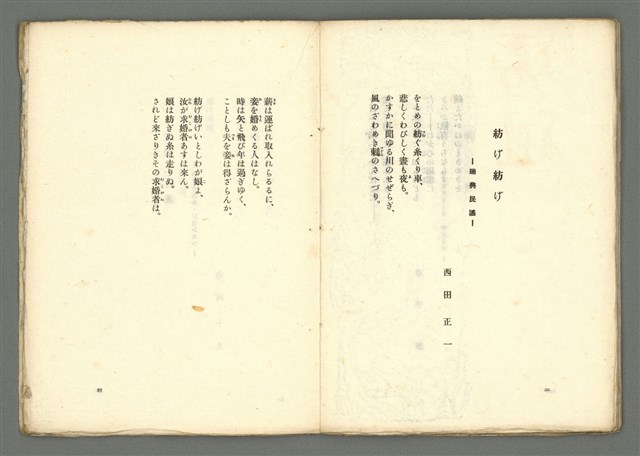 紡げ紡げ
―瑞典民謡―
西田正一
をとめの紡ぐ糸くり車、
悲しくわびしく晝も夜も。
かすかに聞ゆる川のせせらぎ、
風のざわめき鶫のさへづり。
蒴は運ばれ取入れらるるに、
妾を婚めくる人はなし。
時は矢と飛び年は過ぎゆく、
ことしも夫を妾は得ざらんか。
紡げ紡げいとしわが娘よ、
汝が求婚者あすは来ん。
娘は紡ぎぬ糸は走りぬ。
されど来ざりきその求婚者は。